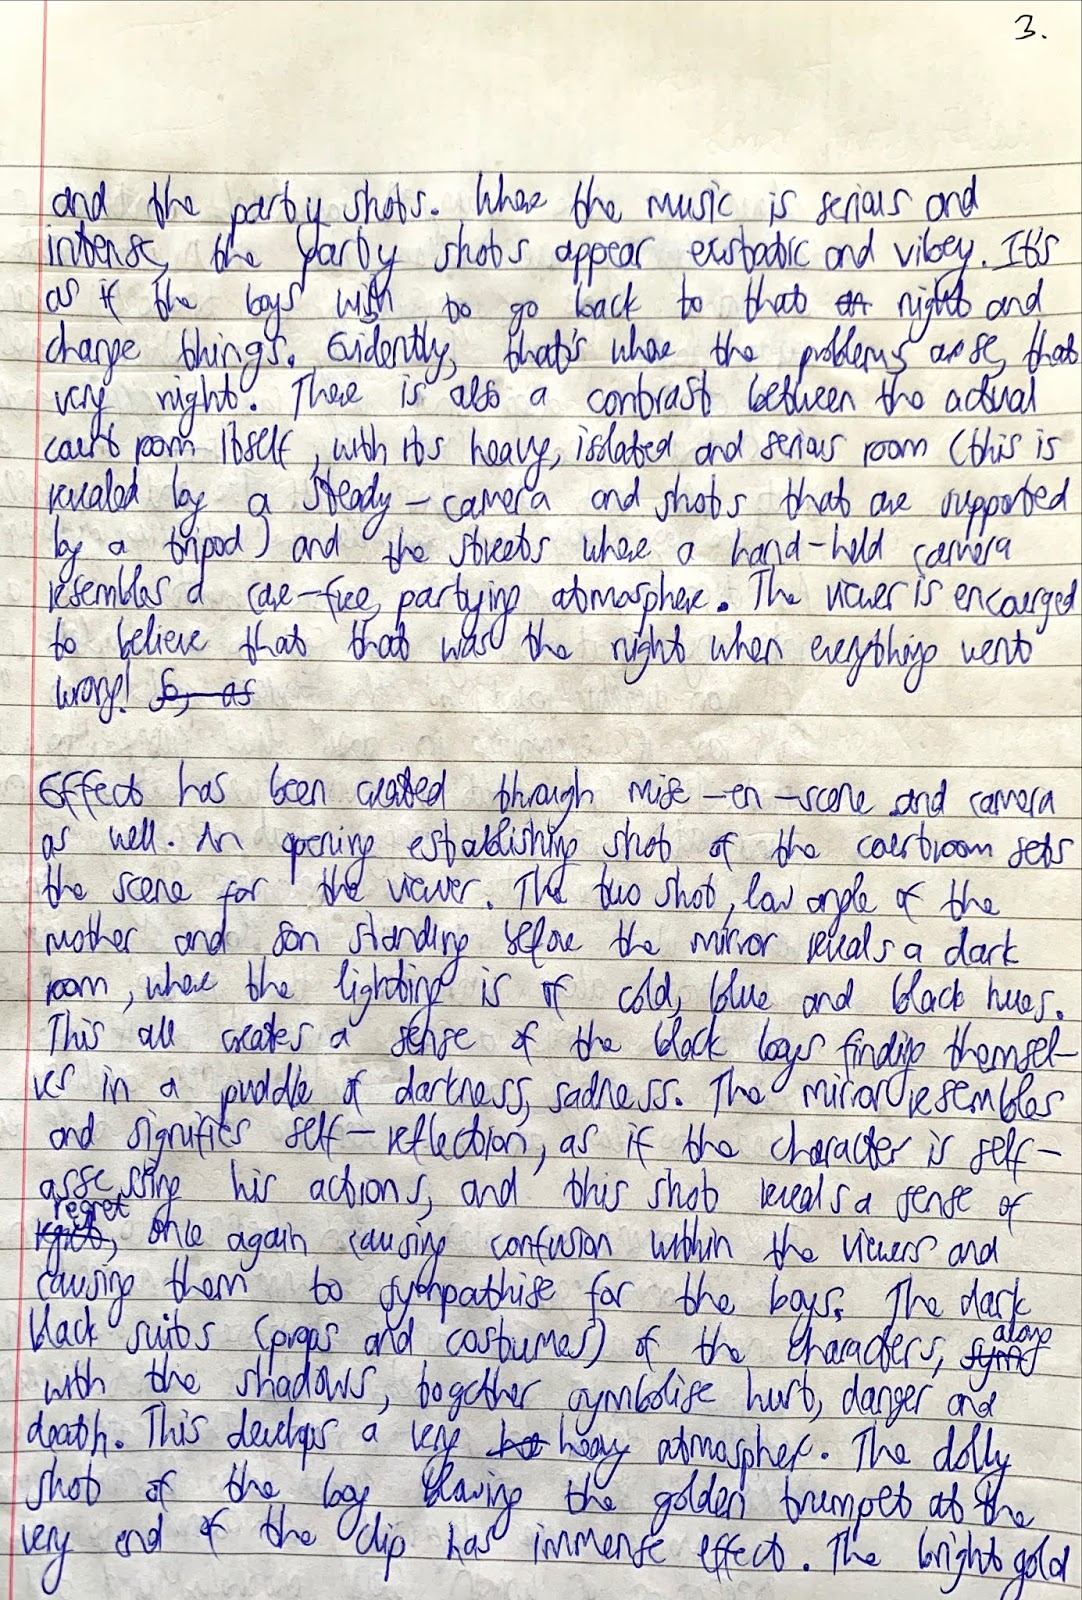 3.
and the party shots. Where the music is serious and
intense, the party shots appear exstatic and vibey. It's
as if the boys wish to go back to that night and
change things. Evidently, that's where the problems arose, that
very night. There is also a contrast between the actual
court room itself, with its heavy, isolated and serious room (this is
revealed by a steady-camera and shots that are supported
by a tripod) and the streets where a hand-held camera
resembles a care-free, partying atmosphere. The viewer is encouraged
to believe that that was the night when everything went
wrong! So, as
Effect has been created through mise-en-scene and camera
as well. An opening establishing shot of the courtroom sets
the scene for the viewer. The two shot, low angle of the
mother and son standing before the mirror reveals a dark
room, where the lighting is of cold, blue and black hues.
This all creates a sense of the black boys finding themsel-
ves in a puddle of darkness, sadness. The mirror resembles
and signifies self-reflection, as if the character is self-
assessing his actions, and this shot reveals a sense of
regret, once again causing confusion within the viewers and
causing them to sympathise for the boys. The dark
black suits (props and costumes) of the characters, along
with the shadows, together symbolise hurt, danger and
death. This develops a very heavy atmosphere. The dolly
shot of the boy blaring the golden trumpet at the
very end of the clip has immense effect. The bright gold